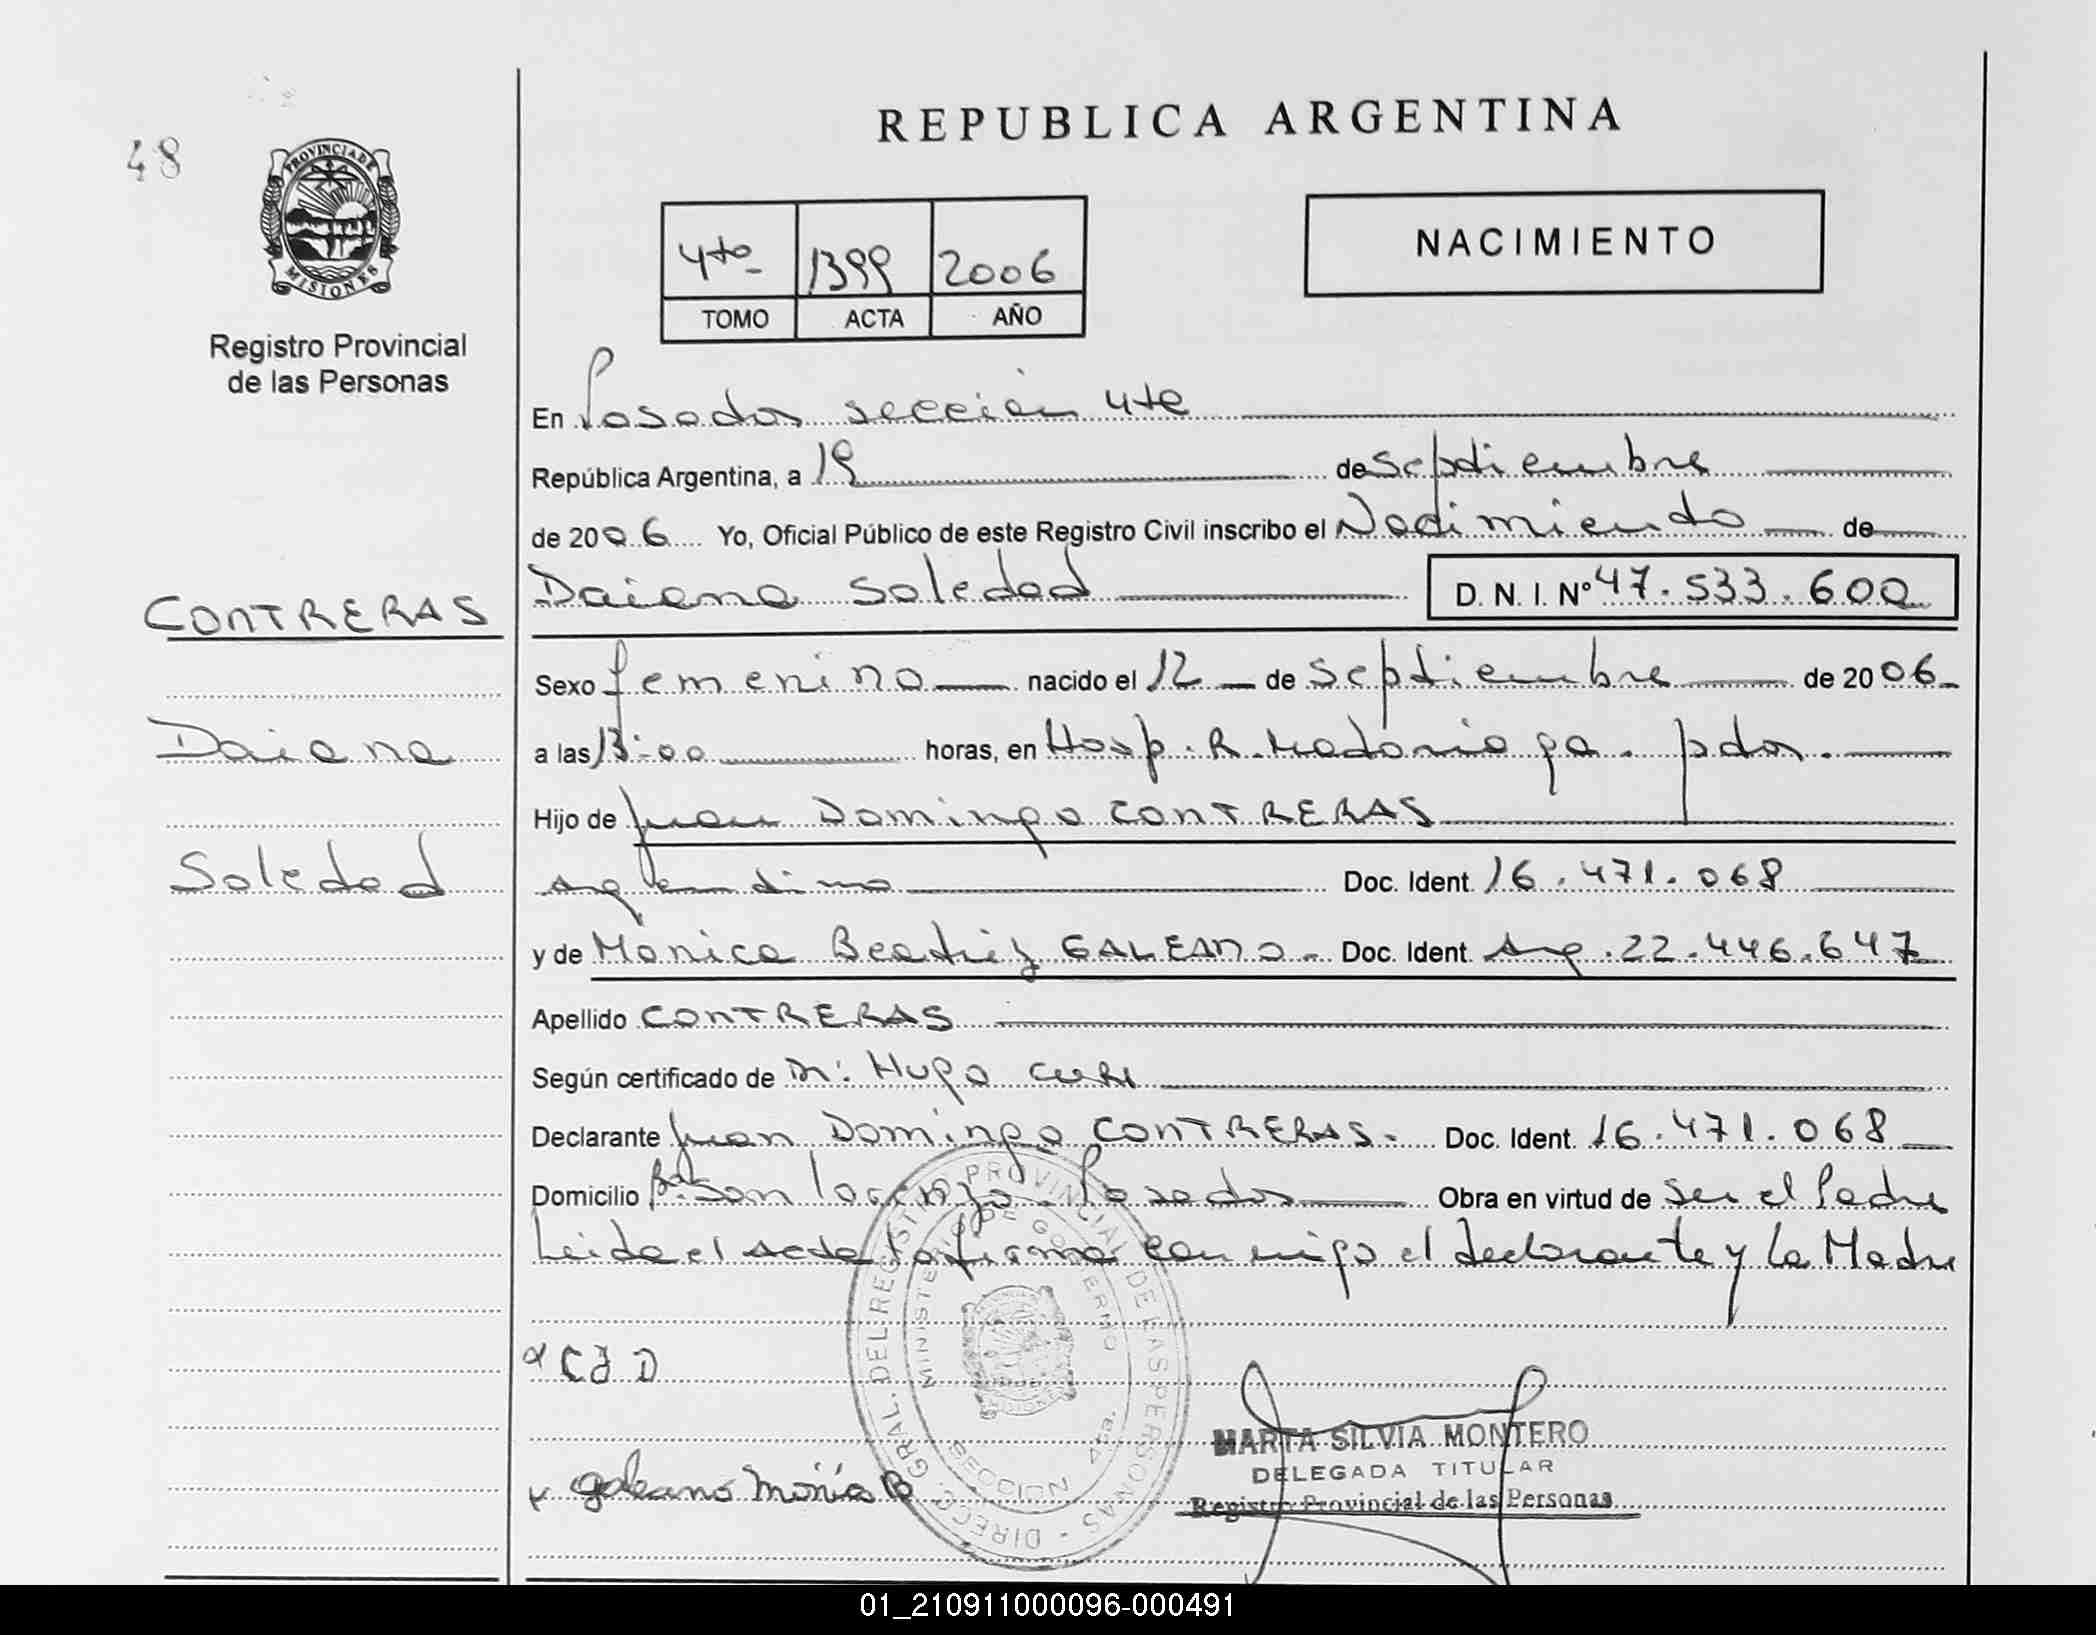 REPUBLICA ARGENTINA
48
PROVINCIA DE MISIONES
NACIMIENTO
4to 1399 2006
TOMO ACTA AÑO
Registro Provincial
de las Personas
En Posadas sección 4ta
República Argentina, a 19 de septiembre
de 2006 Yo, Oficial Público de este Registro Civil inscribo el Nacimiento de
Daiana Soledad D. N. I. Nº 47.533.600
CONTRERAS
Sexo femenino nacido el 12 de septiembre de 2006
Daiana
a las 13:00 horas, en Hosp. R. Madariaga. pdas.
Hijo de Juan Domingo CONTRERAS
Soledad
argentino Doc. Ident. 16.471.068
y de Mónica Beatriz GALEANO Doc. Ident. Arg. 22.446.647
Apellido CONTRERAS
Según certificado de Dr. Hugo
Declarante Juan Domingo CONTRERAS Doc. Ident. 16.471.068
Domicilio Bº San Lorenzo Posadas Obra en virtud de ser el Padre
Leida el acta la firma conmigo el declarante y la Madre
DIRECC. GRAL. DEL REGISTRO PROVINCIAL DE LAS PERSONAS
MINISTERIO DE GOBIERNO
SECCION 4ta.
CJD
MARTA SILVIA MONTERO
DELEGADA TITULAR
Registro Provincial de las Personas
galeano Mónica B
01_210911000096-000491